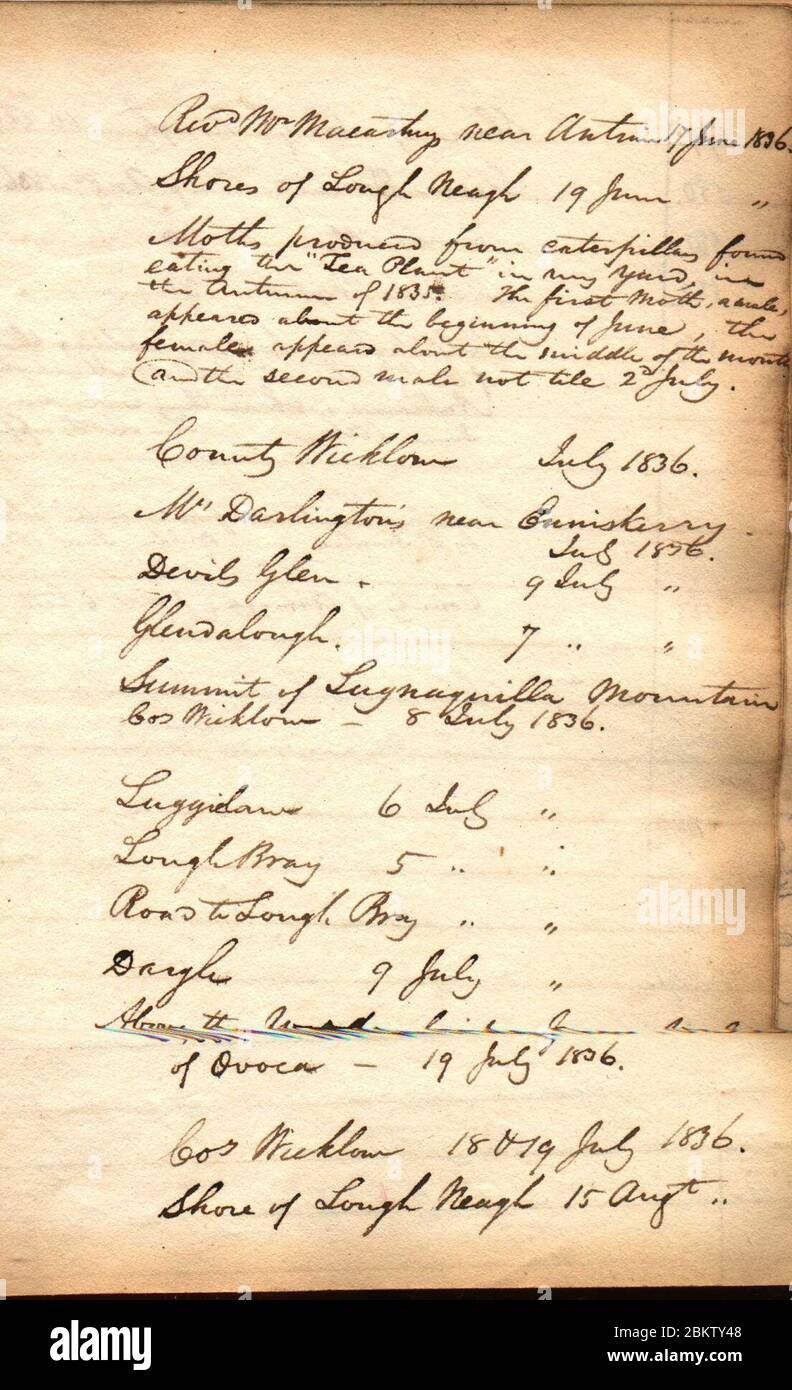 Revd Mr Macartney near Antrim 17 June 1836.
Shores of Lough Neagh 19 June "
Moths produced from caterpillars found
eating the "Tea Plant" in my Yard, in
the Autumn of 1835. The first Moth, a male,
appeared about the beginning of June, the
female appeared about the middle of the month
and the second male not till 2d July.
County Wicklow July 1836.
Mrs Darlington's near Enniskerry.
July 1836.
Devils Glen. 9 July "
Glendalough. 7 " "
Summit of Lugnaquilla Mountain
Coy Wicklow – 8 July 1836.
Luggelaw 6 July "
Lough Bray 5 " "
Road to Lough Bray " "
Dargle 9 July "
Above the
of Ovoca – 19 July 1836.
Coy Wicklow 18 & 19 July 1836.
Shore of Lough Neagh 15 Augt "
alamy
alamy
alamy
alamy
Image ID: 2BKTY48
www.alamy.com